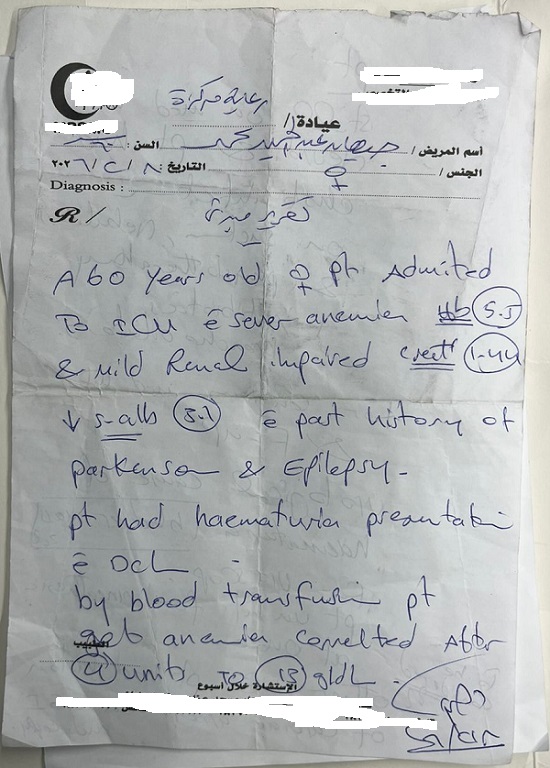 رعاية مركزة
عيادة /
أسم المريض /
السن :
الجنس / ♀
التاريخ :
Diagnosis :
R /
A 60 years old ♀ pt Admited
To ICU ē sever anemia Hb 5.5
& mild Renal impaired creat 1.44
↓ s-alb 3.1 ē past history of
parkenson & Epilepsy -
pt had haematuria presentation
ē DCL
by blood transfusion pt
get anemia corrected After
4 units to 13 g/dL
الإستشارة خلال أسبوع